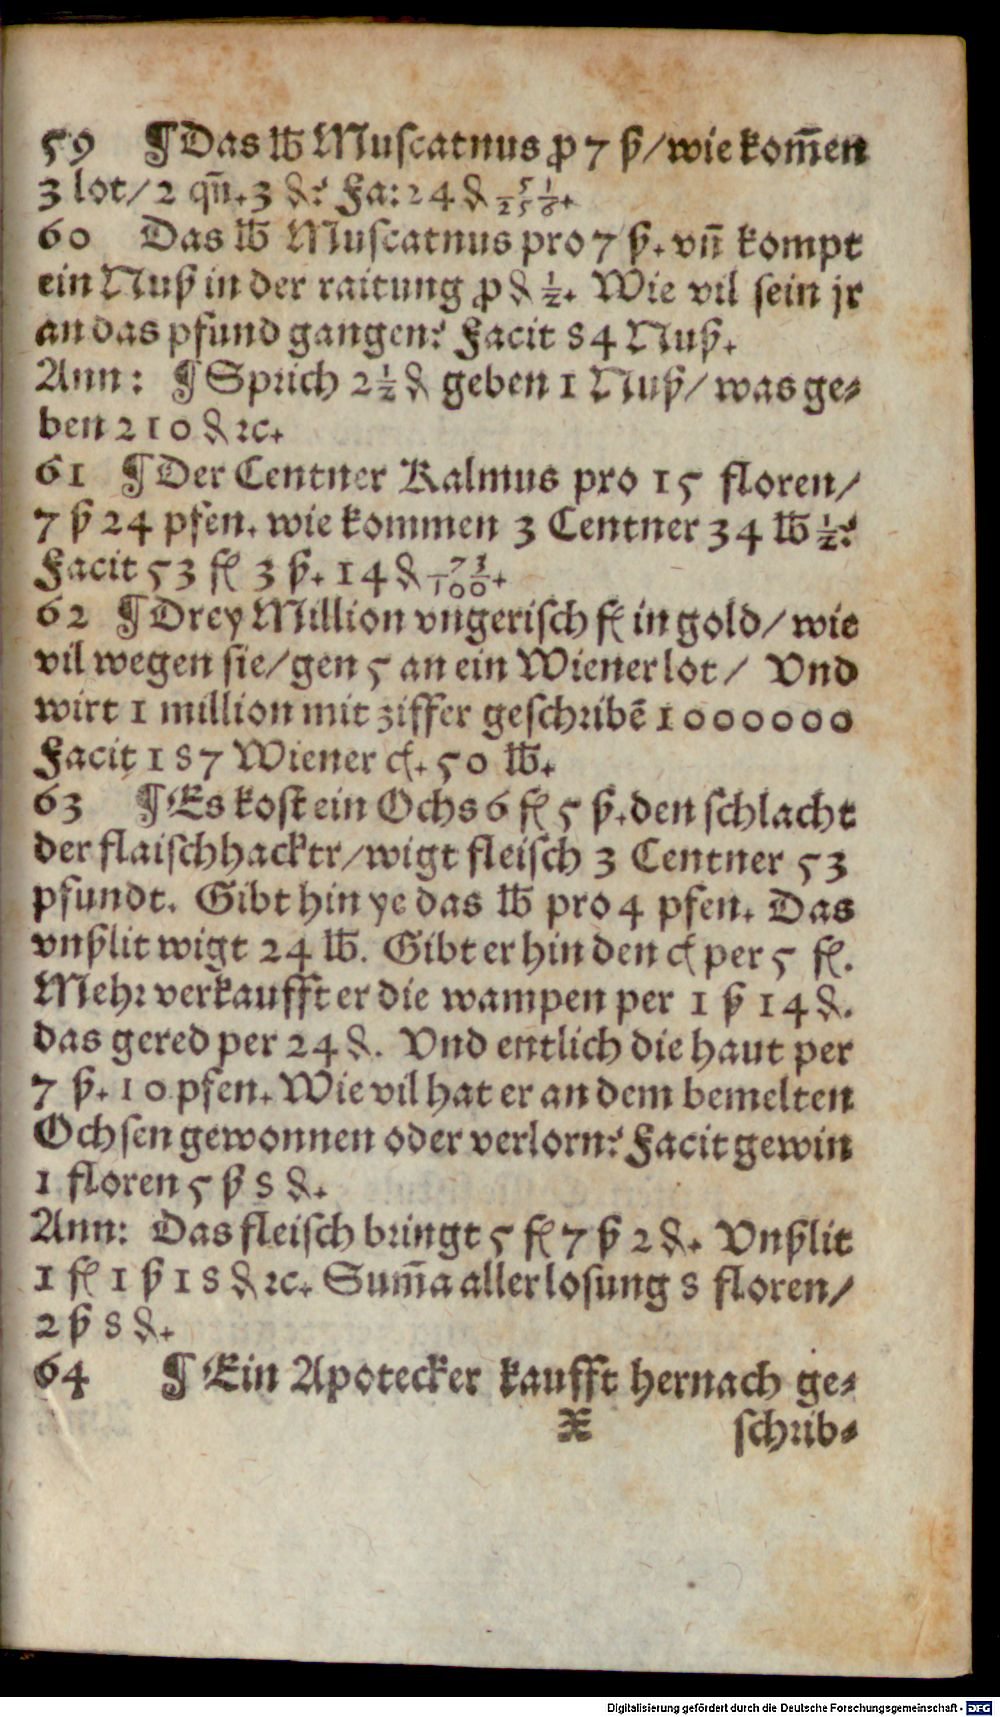 59 ¶ Das ℔ Muſcatnus ꝓ 7 ß/wie kom̃en
3 lot/ 2 qñ. 3 ₰? Fa: 24 ₰ 51/256.
60 Das ℔ Muſcatnus pro 7 ß. vñ kompt
ein Nuß in der raitung ꝓ ₰ ½. Wie vil ſein jr
an das pfund gangen? Facit 84 Nuß.
Ann: ¶ Sprich 2½ ₰ geben 1 Nuß/ was ge⸗
ben 210 ₰ ꝛc.
61 ¶ Der Centner Kalmus pro 15 floren/
7 ß 24 pfen. wie kommen 3 Centner 34 ℔ ½?
Facit 53 fl 3 ß. 14 ₰ 73/100.
62 ¶ Drey Million vngeriſch fl in gold/ wie
vil wegen ſie/gen 5 an ein Wiener lot/ Vnd
wirt 1 million mit ziffer geſchꝛibẽ 1000000
Facit 187 Wiener ct. 50 ℔.
63 ¶ Es koſt ein Ochs 6 fl 5 ß. den ſchlacht
der flaiſchhacktr/wigt fleiſch 3 Centner 53
pfundt. Gibt hin ye das ℔ pro 4 pfen. Das
vnßlit wigt 24 ℔. Gibt er hin den ct per 5 fl.
Mehꝛ verkaufft er die wampen per 1 ß 14 ₰.
das gered per 24 ₰. Vnd entlich die haut per
7 ß. 10 pfen. Wie vil hat er an dem bemelten
Ochſen gewonnen oder verlorn? Facit gewin
1 floren 5 ß 8 ₰.
Ann: Das fleiſch bꝛingt 5 fl 7 ß 2 ₰. Vnßlit
1 fl 1 ß 18 ₰ ꝛc. Sum̃a aller loſung 8 floren/
2 ß 8 ₰.
64 ¶ Ein Apotecker kaufft hernach ge⸗
X ſchꝛib⸗
Digitalisierung gefördert durch die Deutsche Forschungsgemeinschaft - DFG